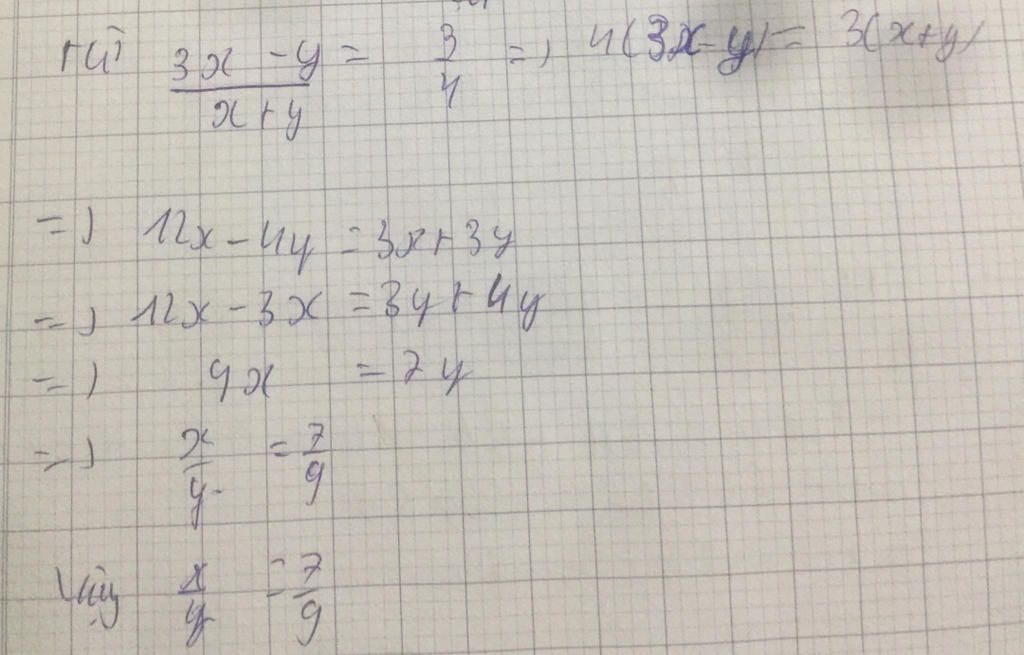 Từ 3x - y / x + y = 3/4 => 4(3x - y) = 3(x+y)
=> 12x - 4y = 3x + 3y
=> 12x - 3x = 3y + 4y
=> 9x = 7y
=> x/y = 7/9
Vậy x/y = 7/9